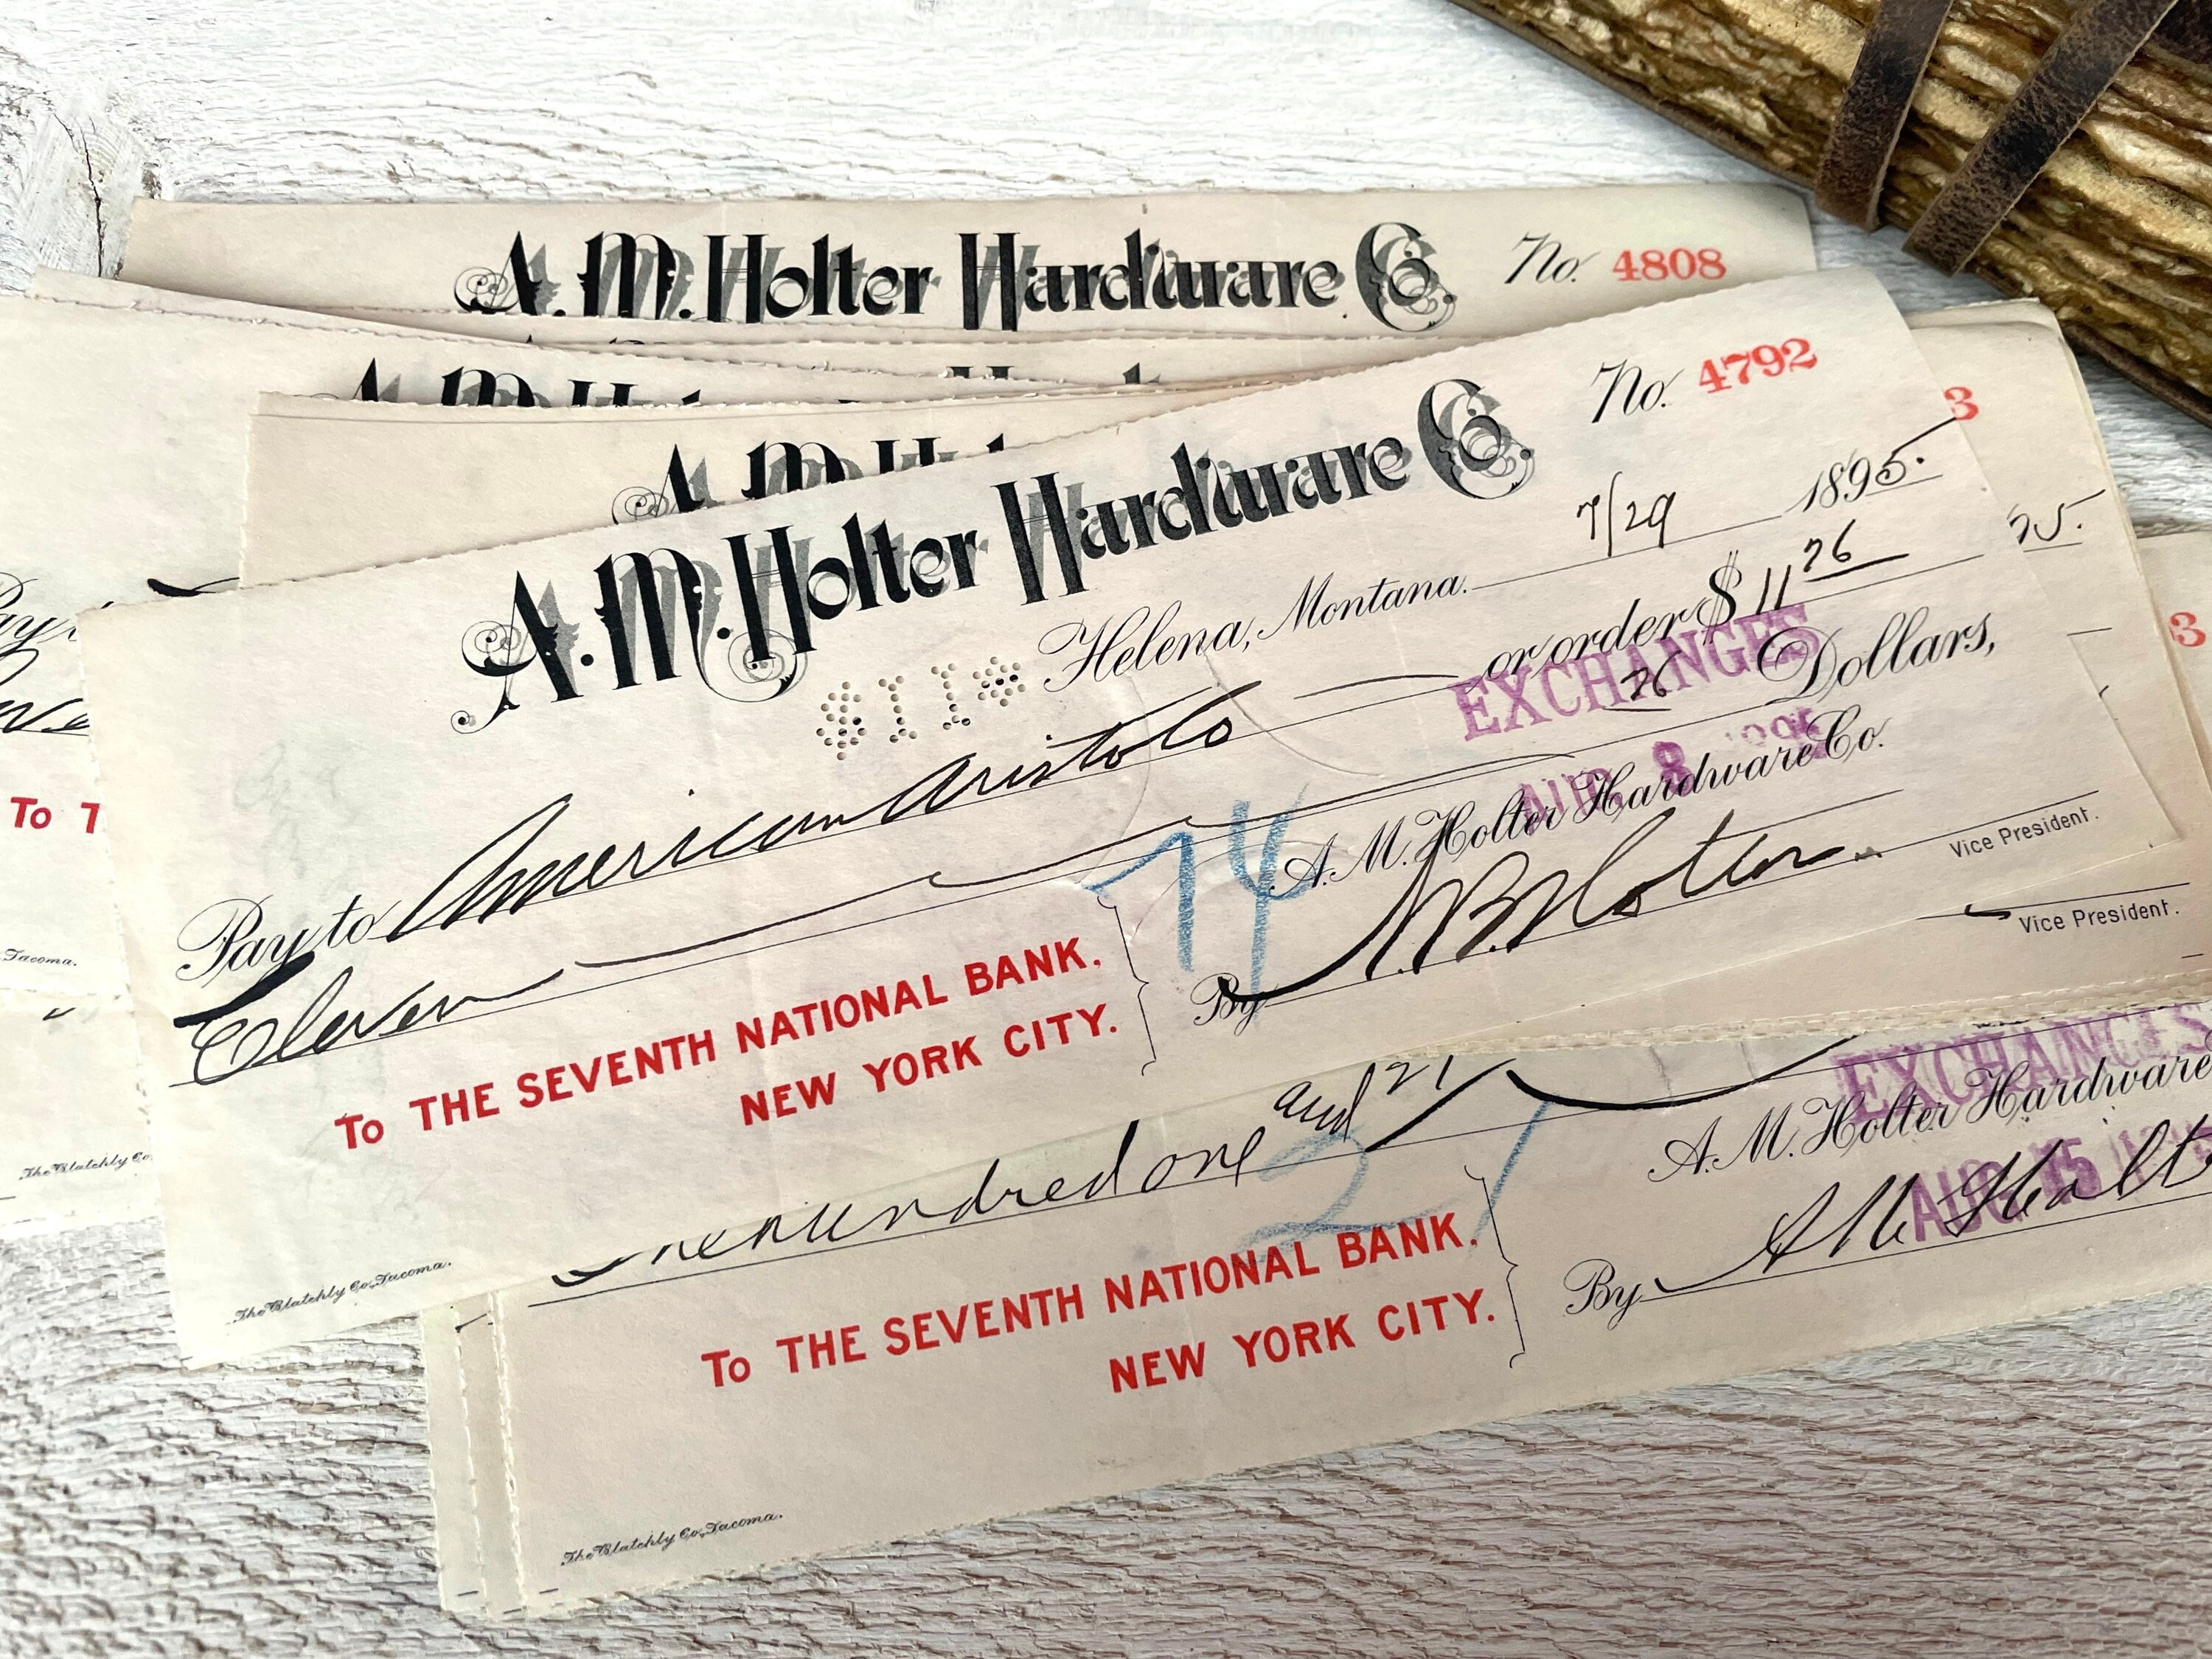 A. M. Holter Hardware Co. No. 4808
A. M. Holter Hardware Co. No. 4792
3
Helena, Montana. 7/29 1895.
25.
$11*
Pay to American Aristo Co or order $ 11 26
EXCHANGES
Eleven 26 Dollars,
AUG 8 1895
74
A. M. Holter Hardware Co.
By
Vice President.
To THE SEVENTH NATIONAL BANK.
NEW YORK CITY.
The Blatchly Co, Tacoma.
3
Vice President.
hundred one and 21
21
EXCHANGES
A. M. Holter Hardware
AUG 15
By A M Holt
To THE SEVENTH NATIONAL BANK.
NEW YORK CITY.
The Blatchly Co, Tacoma.
Pay
To T
Tacoma.
The Blatchly Co